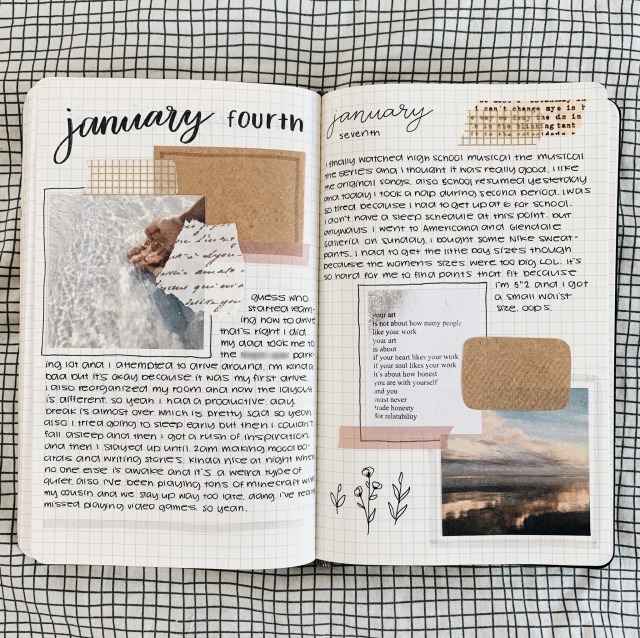 january fourth
guess who
started learn-
ing how to drive
that's right i did.
my dad took me to
the park-
ing lot and i attempted to drive around. i'm kinda
bad but it's okay because it was my first drive
i also reorganized my room and now the layout
is different. so yeah i had a productive day.
break is almost over which is pretty sad so yeah
also i tried going to sleep early but then i couldn't
fall asleep and then i got a rush of inspiration
and then i stayed up until 2am making mood bo-
ards and writing stories. kinda nice at night when
no one else is awake and it's a weird type of
quiet. also i've been playing tons of minecraft with
my cousin and we stay up way too late. dang. i've really
missed playing video games. so yeah.
january
seventh
i can't change mye is b
is the blinking tant
i finally watched high school musical the musical
the series and i thought it was really good. i like
the original songs. also school resumed yesterday
and today i took a nap during second period. i was
so tired because i had to get up at 6 for school.
i don't have a sleep schedule at this point. but
anyways i went to Americana and Glendale
Galleria on sunday. i bought some Nike sweat-
pants. i had to get the little boy sizes though
because the women's sizes were too big LOL. it's
so hard for me to find pants that fit because
i'm 5"2 and i got
a small waist
size. oops.
your art
is not about how many people
like your work
your art
is about
if your heart likes your work
if your soul likes your work
it's about how honest
you are with yourself
and you
must never
trade honesty
for relatability